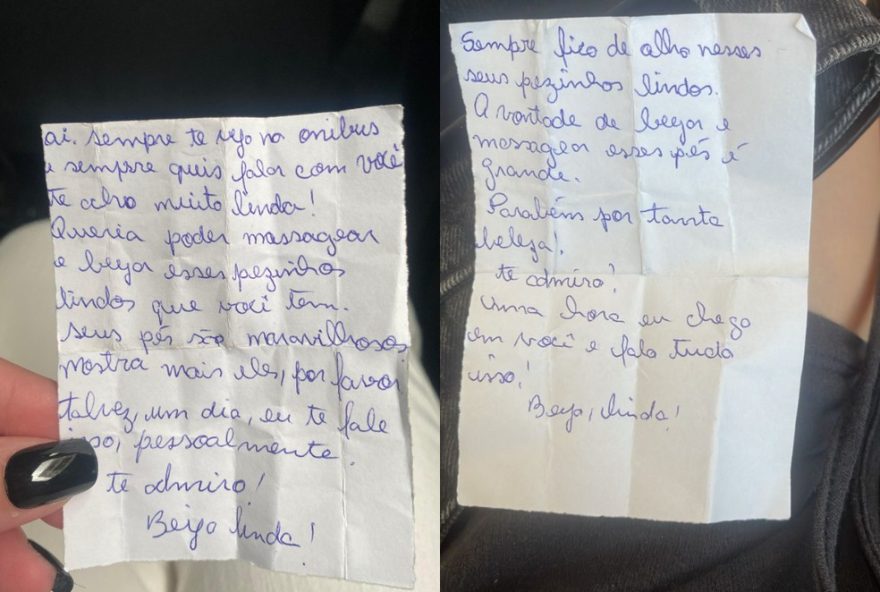 ai. sempre te vejo no onibus
e sempre quis falar com você
te acho muito linda!
Queria poder massagear
e beijar esses pezinhos
lindos que você tem.
seus pés são maravilhosos
mostra mais eles, por favor
talvez, um dia, eu te fale
isso, pessoalmente.
te admiro!
Beijo linda!
Sempre fico de olho nesses
seus pezinhos lindos.
A vontade de beijar e
massagear esses pés é
grande.
Parabéns por tanta
beleza!
te admiro!
uma hora eu chego
em você e falo tudo
isso!
Beijo, linda!